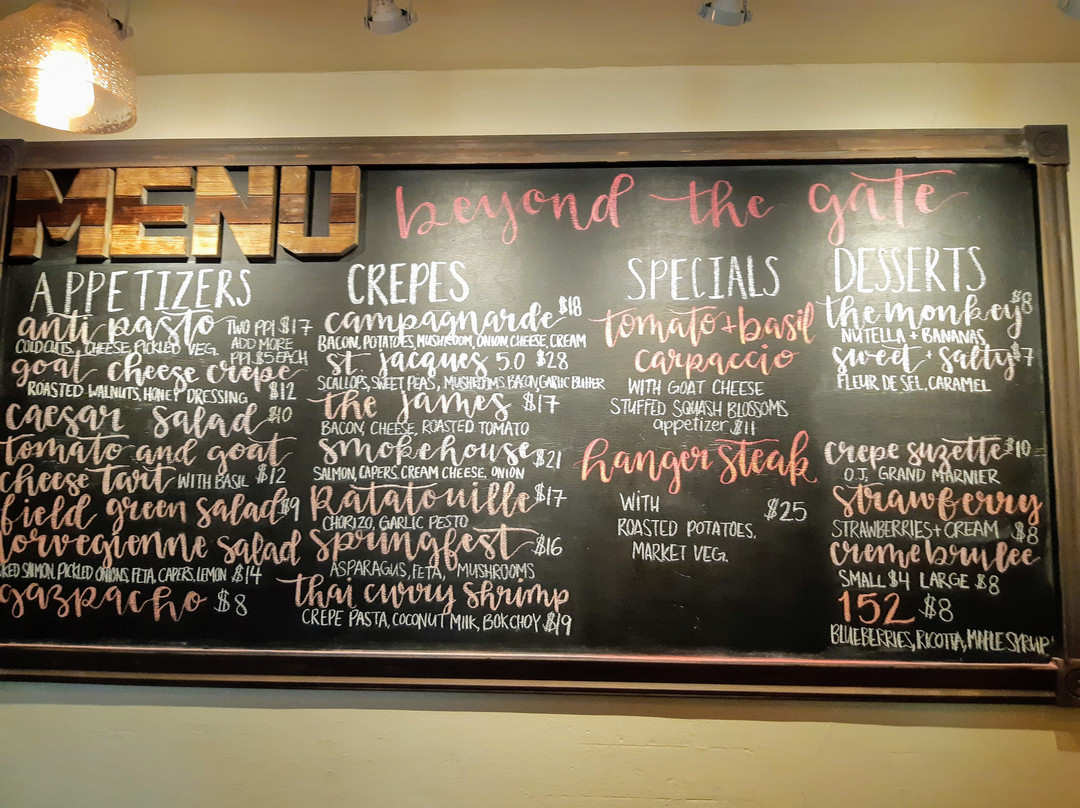 MENU
beyond the gate
APPETIZERS
anti pasto TWO PPl $17
COLD CUTS, CHEESE, PICKLED VEG. ADD MORE
PPl $5 EACH
goat cheese crepe
ROASTED WALNUTS, HONEY DRESSING $12
caesar salad $10
tomato and goat
cheese tart WITH BASIL $12
field green salad $9
norvegienne salad
KED SALMON, PICKLED ONIONS, FETA, CAPERS, LEMON $14
gazpacho $8
CREPES
campagnarde $18
BACON, POTATOES, MUSHROOM, ONION, CHEESE, CREAM
st. jacques 5.0 $28
SCALLOPS, SWEET PEAS, MUSHROOMS, BACON, GARLIC BUTTER
the james $17
BACON, CHEESE, ROASTED TOMATO
smokehouse $21
SALMON, CAPERS, CREAM CHEESE, ONION
Ratatouille $17
CHORIZO, GARLIC PESTO
springfest $16
ASPARAGUS, FETA, MUSHROOMS
thai curry shrimp
CREPE PASTA, COCONUT MILK, BOK CHOY $19
SPECIALS
tomato + basil
carpaccio
WITH GOAT CHEESE
STUFFED SQUASH BLOSSOMS
appetizer $11
hanger steak
WITH $25
ROASTED POTATOES,
MARKET VEG.
DESSERTS
the monkey $8
NUTELLA + BANANAS
sweet + salty $7
FLEUR DE SEL, CARAMEL
crepe suzette $10
O.J, GRAND MARNIER
strawberry
STRAWBERRIES + CREAM $8
creme brulee
SMALL $4 LARGE $8
152 $8
BLUEBERRIES, RICOTTA, MAPLE SYRUP